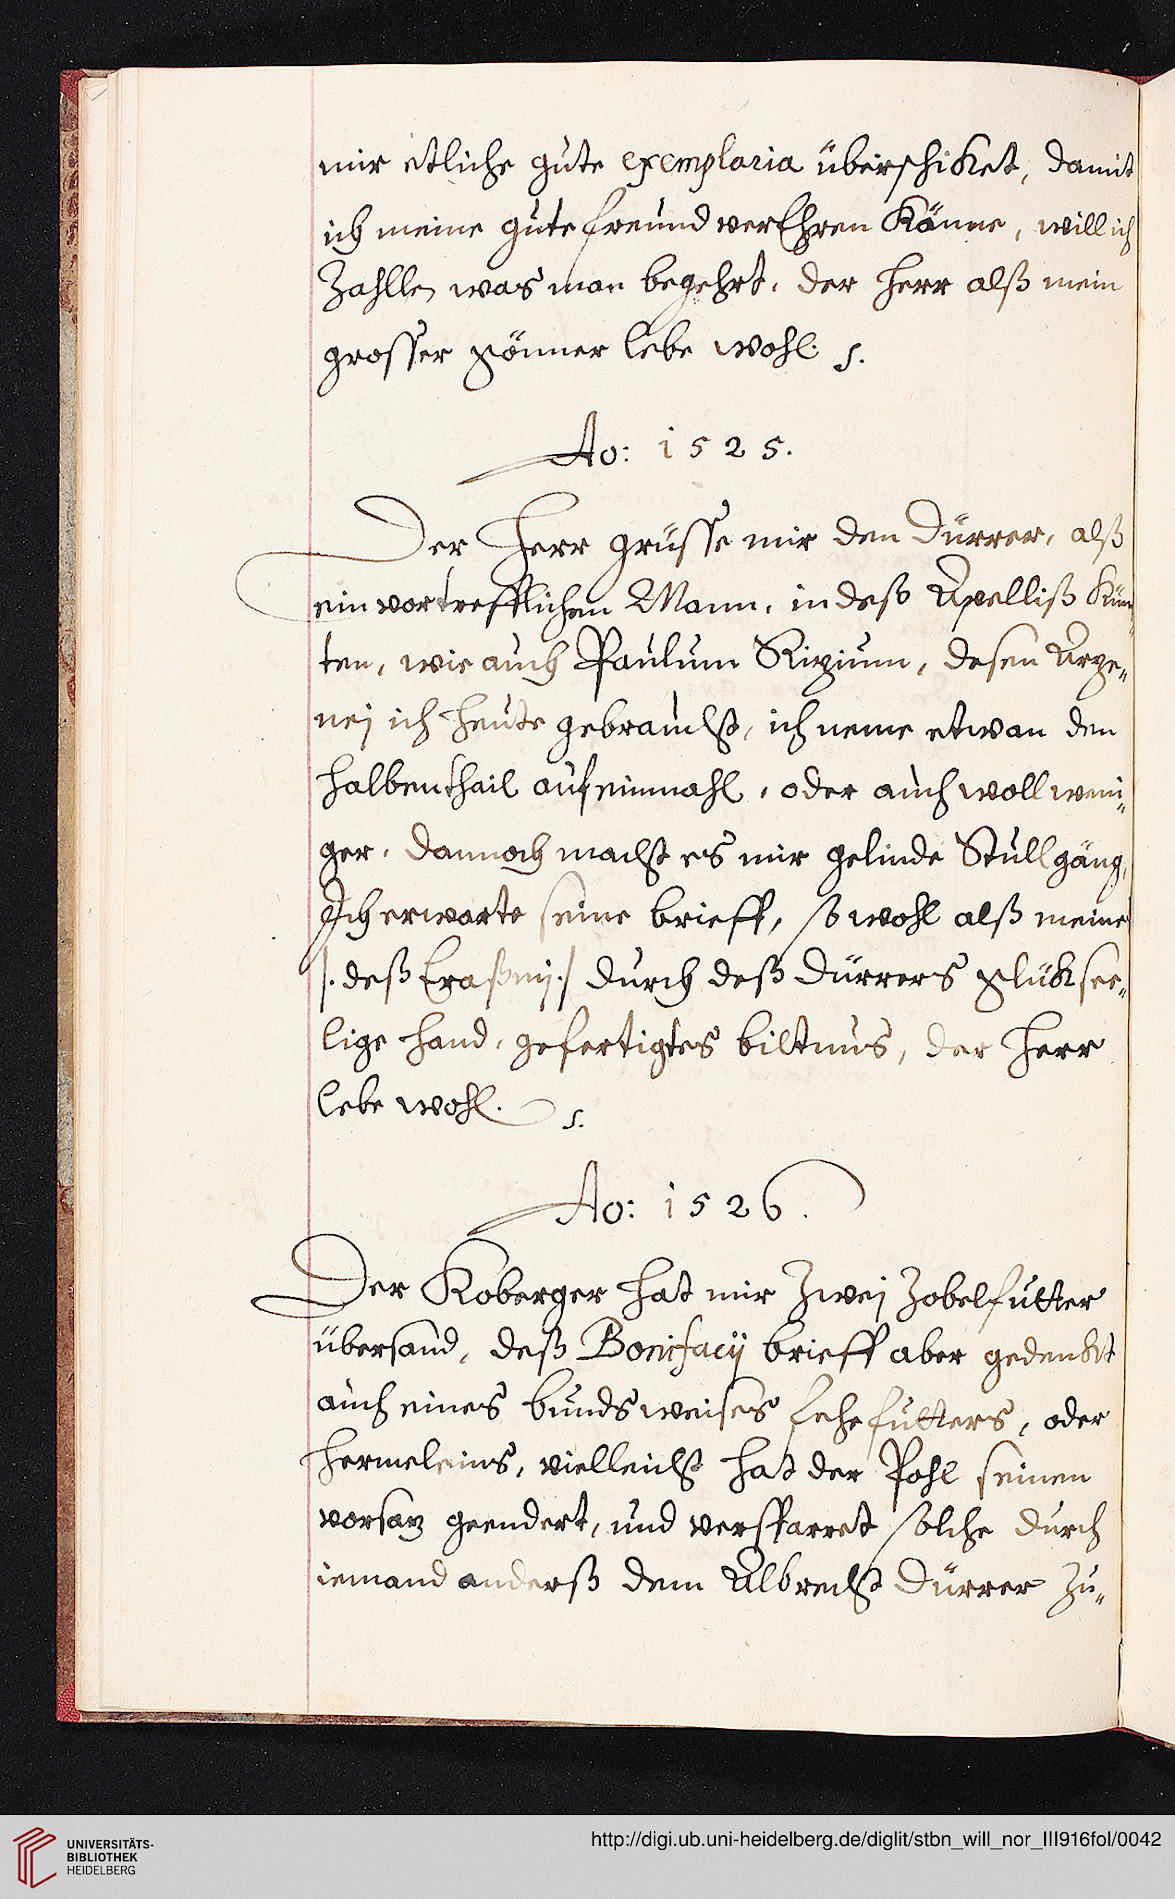 mir etliche gute exemplaria überschiket, damit
ich meine gute freund verEhren Könne, will ich
Zahlle, was man begehrt, der Herr alß mein
grosser gönner lebe wohl. s.
Ao: 1525.
Der Herr grüsse mir den Dürrer, alß
ein vortrefflichen Mann, in deß Apelliß Kün-
ten, wie auch Paulum Rizium, desen Arze-
nej ich heute gebraucht, ich neme etwan den
halben thail auf einmahl, oder auch woll weni-
ger, dannoch macht es mir gelinde Stullgäng,
Ich erwarte seine brieff, so wohl alß meine
/. deß Eraßmj ./ durch deß Dürrers glüksee-
lige hand, gefertigtes biltnus, der Herr
lebe wohl. s.
Ao: 1526.
Der Koberger hat mir Zwej Zobelfutter
übersand, deß Bonifacij brieff aber gedenkt
auch eines bundsweises fehefutters, oder
hermeleins, vielleicht hat der Pohl seinen
vorsaz geendert, und versparret solche durch
iemand anderß dem Albrecht Dürrer Zu-
UNIVERSITÄTS-
BIBLIOTHEK
HEIDELBERG
http://digi.ub.uni-heidelberg.de/diglit/stbn_will_nor_III916fol/0042